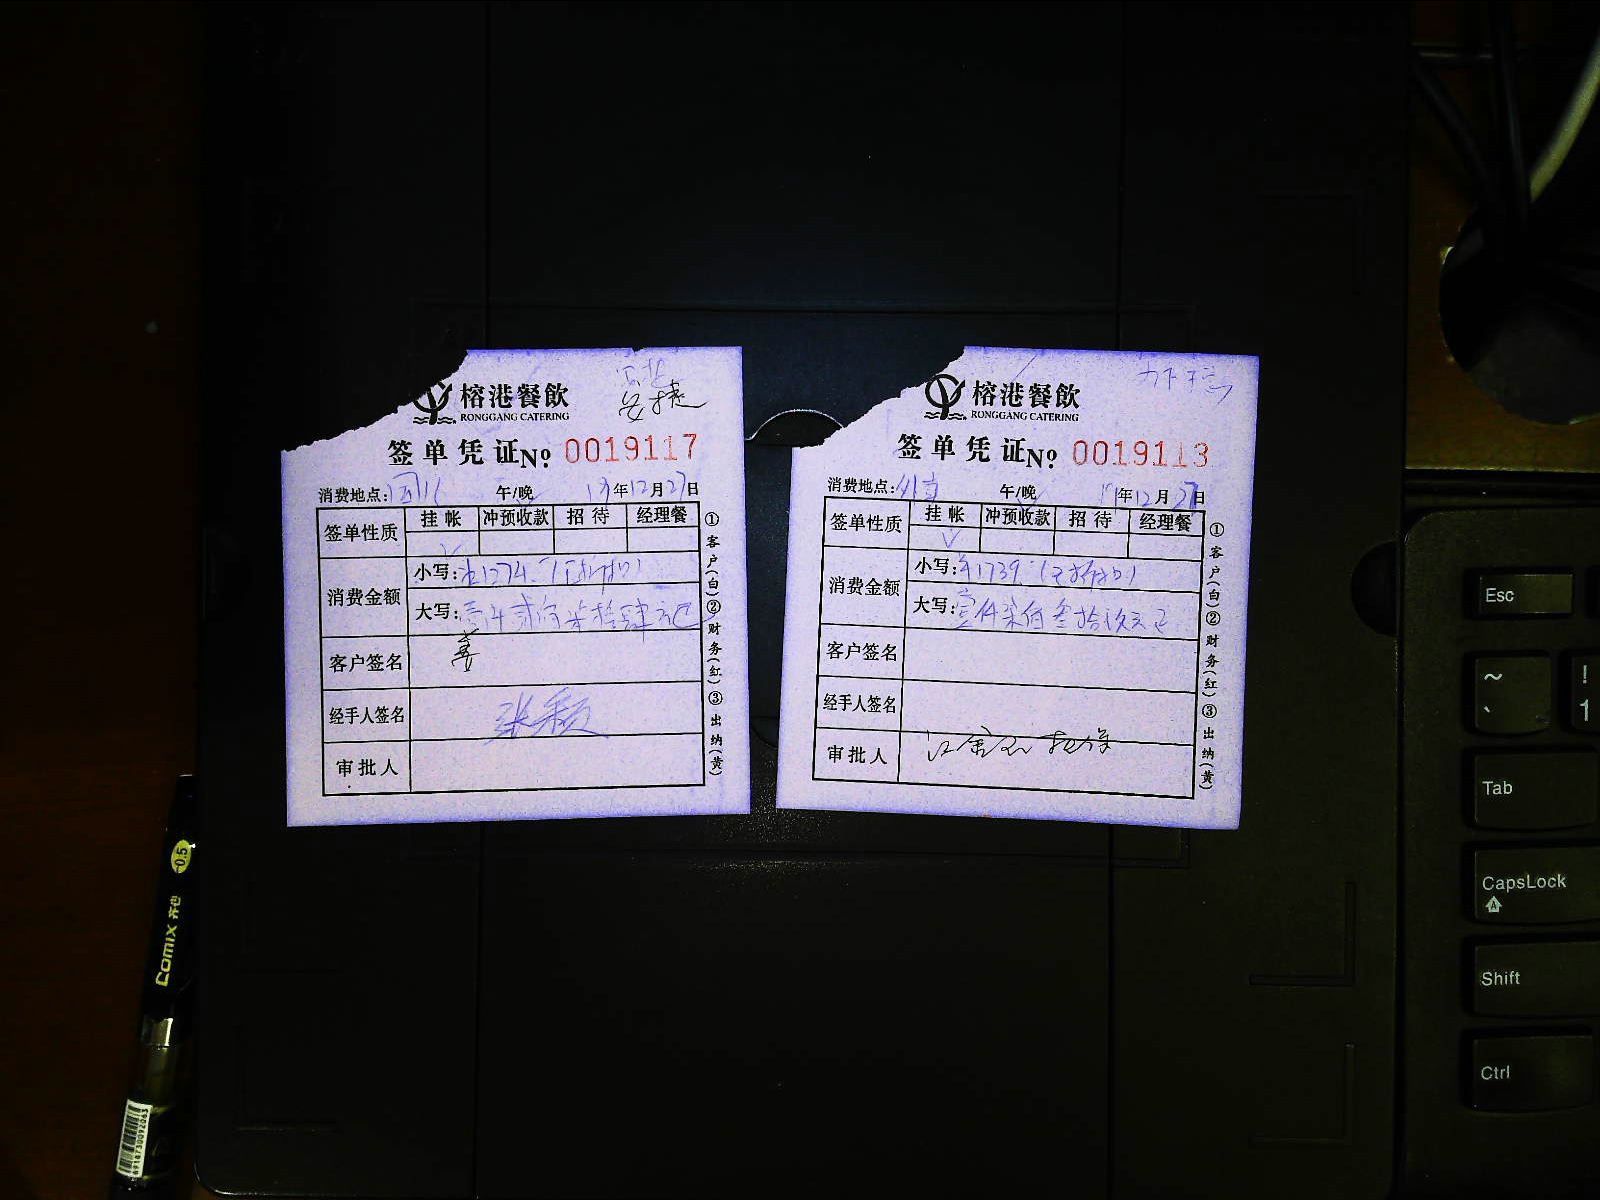 榕港餐飲
RONGGANG CATERING
签单凭证No 0019117
消费地点: 午/晚 19年12月27日
签单性质 挂帐 冲预收款 招待 经理餐
消费金额
小写:¥1274.
大写:壹仟贰佰柒拾肆元
客户签名
经手人签名 张颖
审批人
①客户(白)②财务(红)③出纳(黄)
榕港餐飲
RONGGANG CATERING
签单凭证No 0019113
消费地点: 午/晚 19年12月27日
签单性质 挂帐 冲预收款 招待 经理餐
消费金额
小写:¥1739.
大写:壹仟柒佰叁拾玖元
客户签名
经手人签名
审批人
①客户(白)②财务(红)③出纳(黄)
Comix 齐心
0.5
Esc
~
`
!
1
Tab
CapsLock
A
Shift
Ctrl